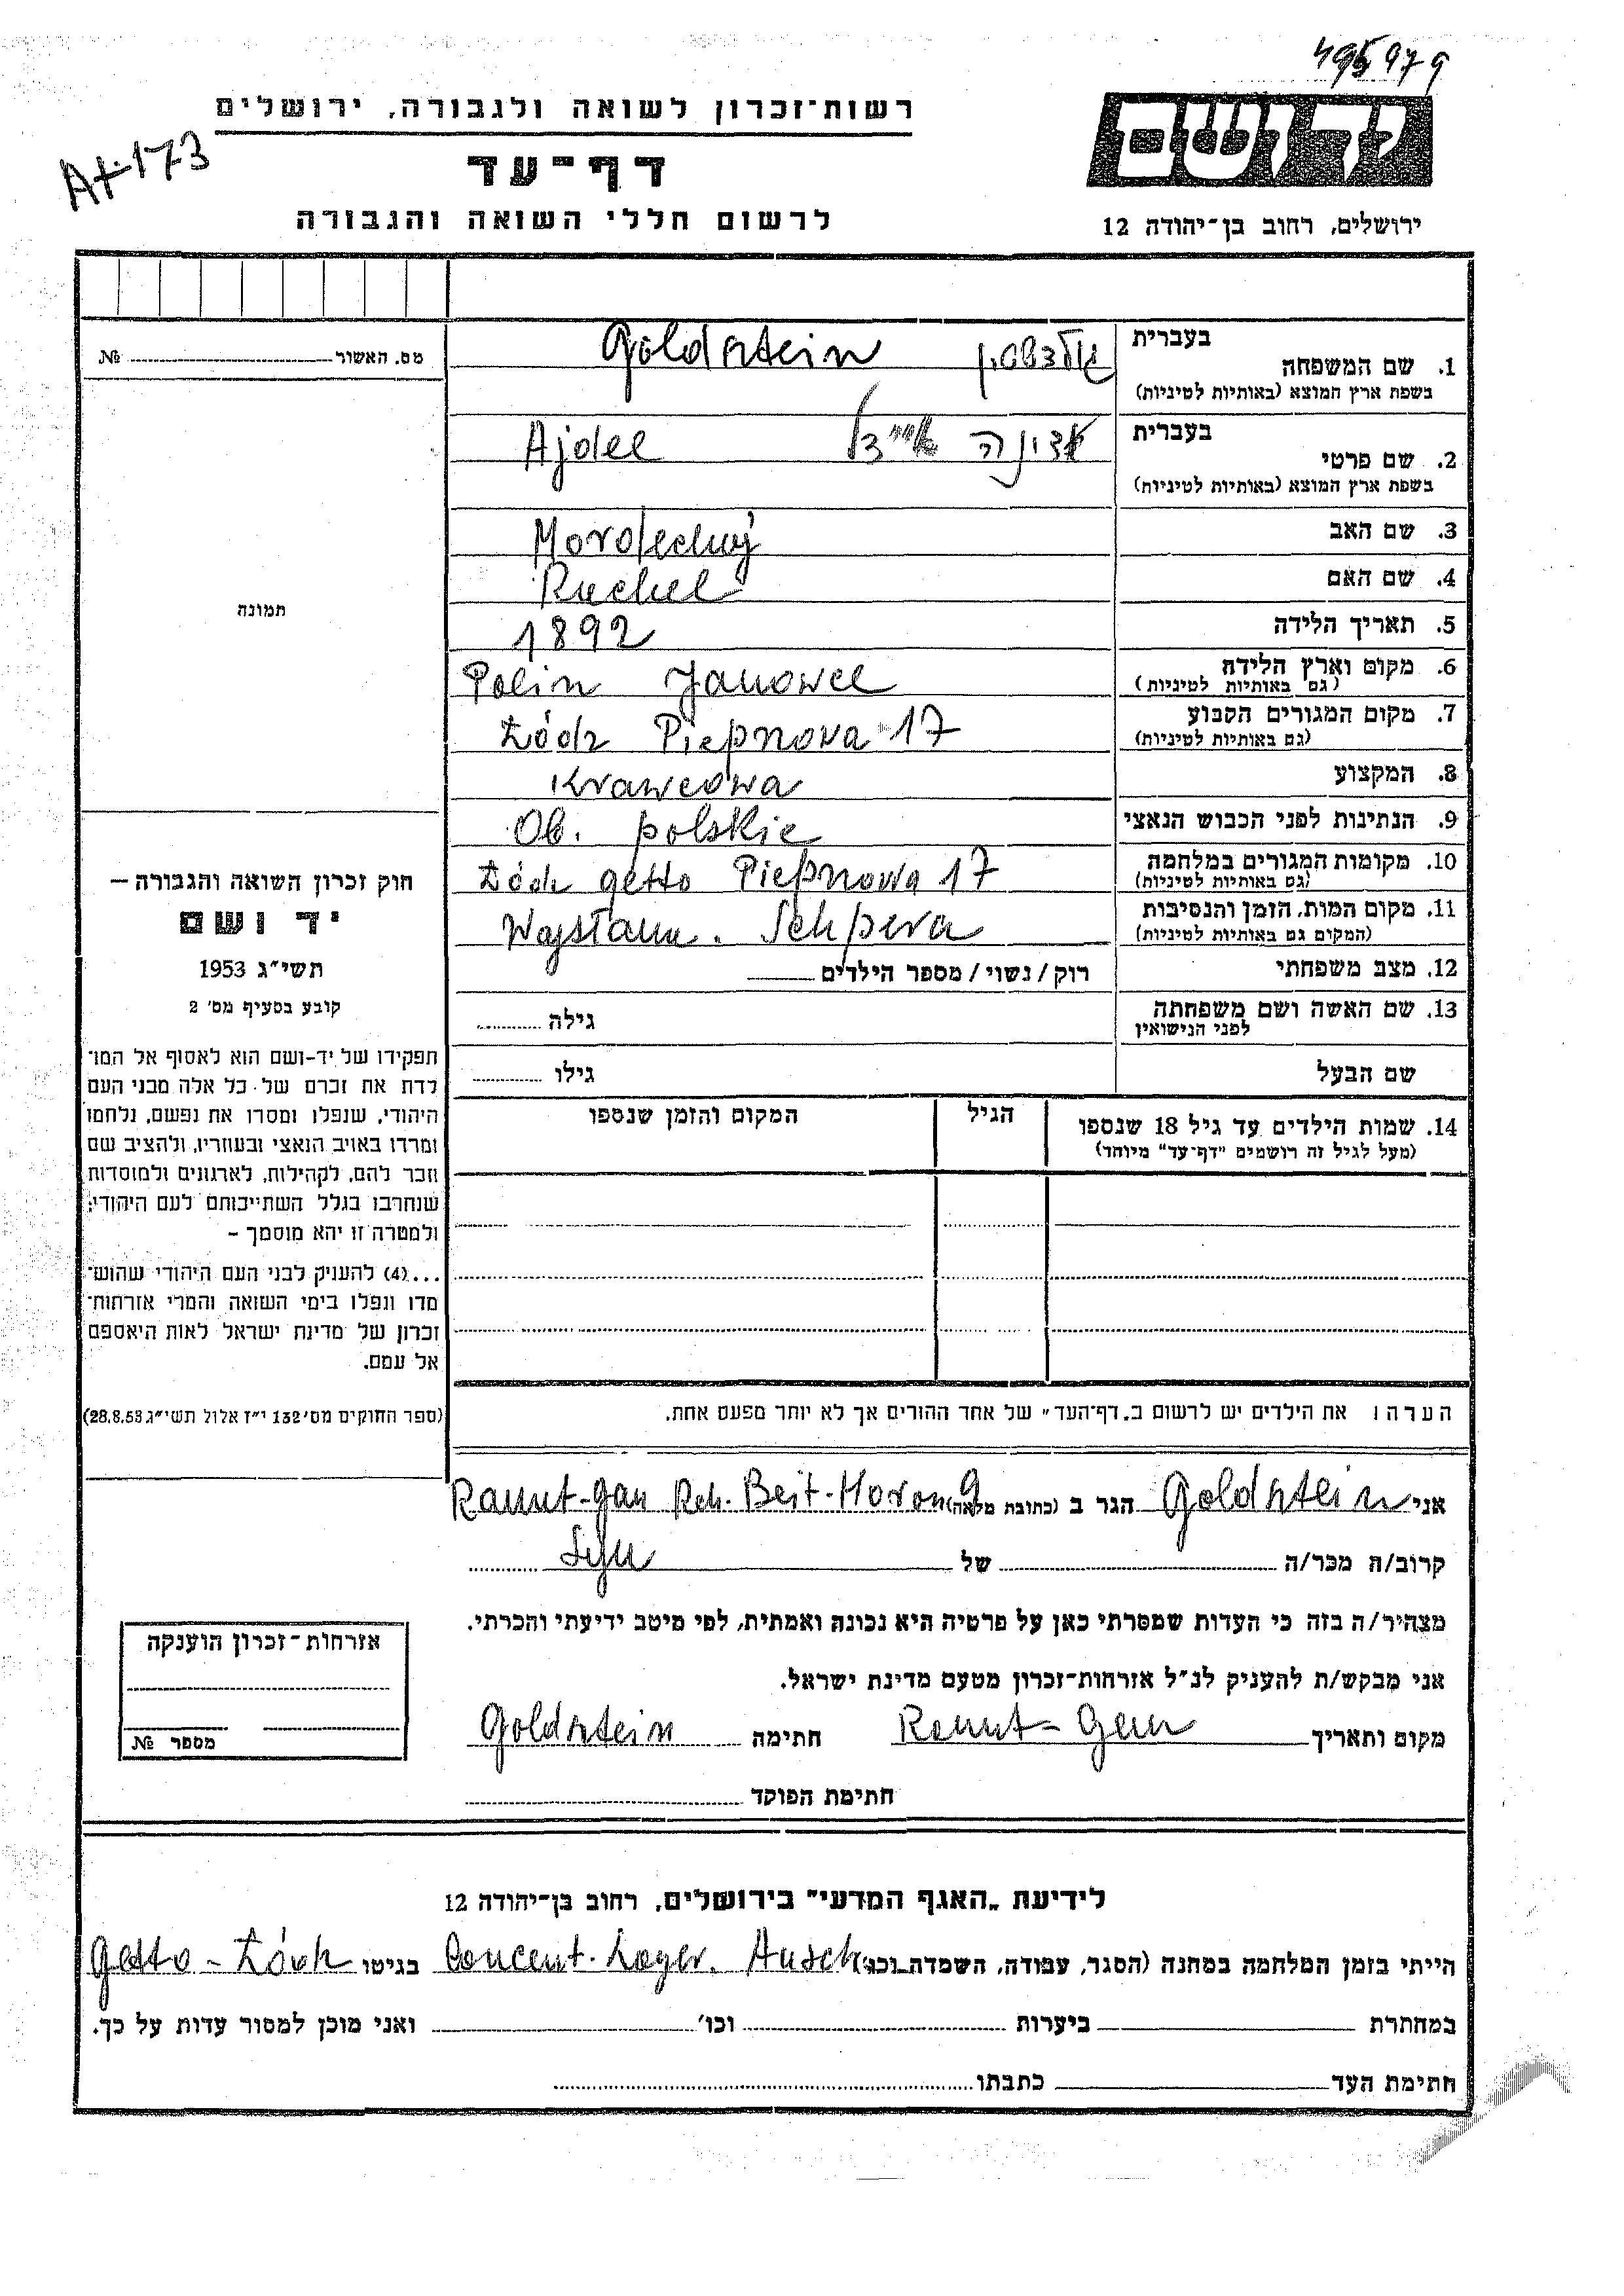 495979
יד ושם
רשות־זכרון לשואה ולגבורה, ירושלים
At-173
דף־עד
לרשום חללי השואה והגבורה
ירושלים, רחוב בן־יהודה 12
מס. האשור № 
בעברית
1. שם המשפחה גולדשטיין Goldstein
בשפת ארץ המוצא (באותיות לטיניות)
בעברית
2. שם פרטי Ajdel
בשפת ארץ המוצא (באותיות לטיניות)
3. שם האב Mordechaj
4. שם האם Ruchel
5. תאריך הלידה 1892
6. מקום וארץ הלידה Polin Janowec
(גם באותיות לטיניות)
7. מקום המגורים הקבוע Łódz Piepnova 17
(גם באותיות לטיניות)
8. המקצוע Krawcowa
9. הנתינות לפני הכבוש הנאצי Ob. polskie
10. מקומות המגורים במלחמה Łódz getto Piepnowa 17
(גם באותיות לטיניות)
11. מקום המות, הזמן והנסיבות Schpera
(המקום גם באותיות לטיניות)
12. מצב משפחתי רוק / נשוי / מספר הילדים
13. שם האשה ושם משפחתה גילה
לפני הנישואין
שם הבעל גילו
14. שמות הילדים עד גיל 18 שנספו הגיל המקום והזמן שנספו
(מעל לגיל זה רושמים "דף־עד" מיוחד)
הערה: את הילדים יש לרשום ב„דף־העד" של אחד ההורים אך לא יותר מפעם אחת.
תמונה
חוק זכרון השואה והגבורה —
יד ושם
תשי״ג 1953
קובע בסעיף מס' 2
תפקידו של יד-ושם הוא לאסוף אל המו־
לדת את זכרם של כל אלה מבני העם
היהודי, שנפלו ומסרו את נפשם, נלחמו
ומרדו באויב הנאצי ובעוזריו, ולהציב שם
וזכר להם, לקהילות, לארגונים ולמוסדות
שנחרבו בגלל השתייכותם לעם היהודי;
ולמטרה זו יהא מוסמך –
...(4) להעניק לבני העם היהודי שהוש־
מדו ונפלו בימי השואה והמרי אזרחות־
זכרון של מדינת ישראל לאות היאספם
אל עמם.
(ספר החוקים מס' 132 י״ז אלול תשי״ג 28.8.53)
אני Goldstein הגר ב (כתובת מלאה) Ramat-gan Reh. Beit-Horon 9
קרוב/ה מכר/ה של Syn
מצהיר/ה בזה כי העדות שמסרתי כאן על פרטיה היא נכונה ואמתית, לפי מיטב ידיעתי והכרתי.
אני מבקש/ת להעניק לנ״ל אזרחות־זכרון מטעם מדינת ישראל.
מקום ותאריך Ramat-Gan חתימה Goldstein
חתימת הפוקד
אזרחות־זכרון הוענקה
מספר №
לידיעת „האגף המדעי" בירושלים, רחוב בן־יהודה 12
הייתי בזמן המלחמה במחנה (הסגר, עבודה, השמדה וכו') Concent. Lager. Ausch בגיטו Getto - Łódz
במחתרת ביערות וכו' ואני מוכן למסור עדות על כך.
חתימת העד כתבתו